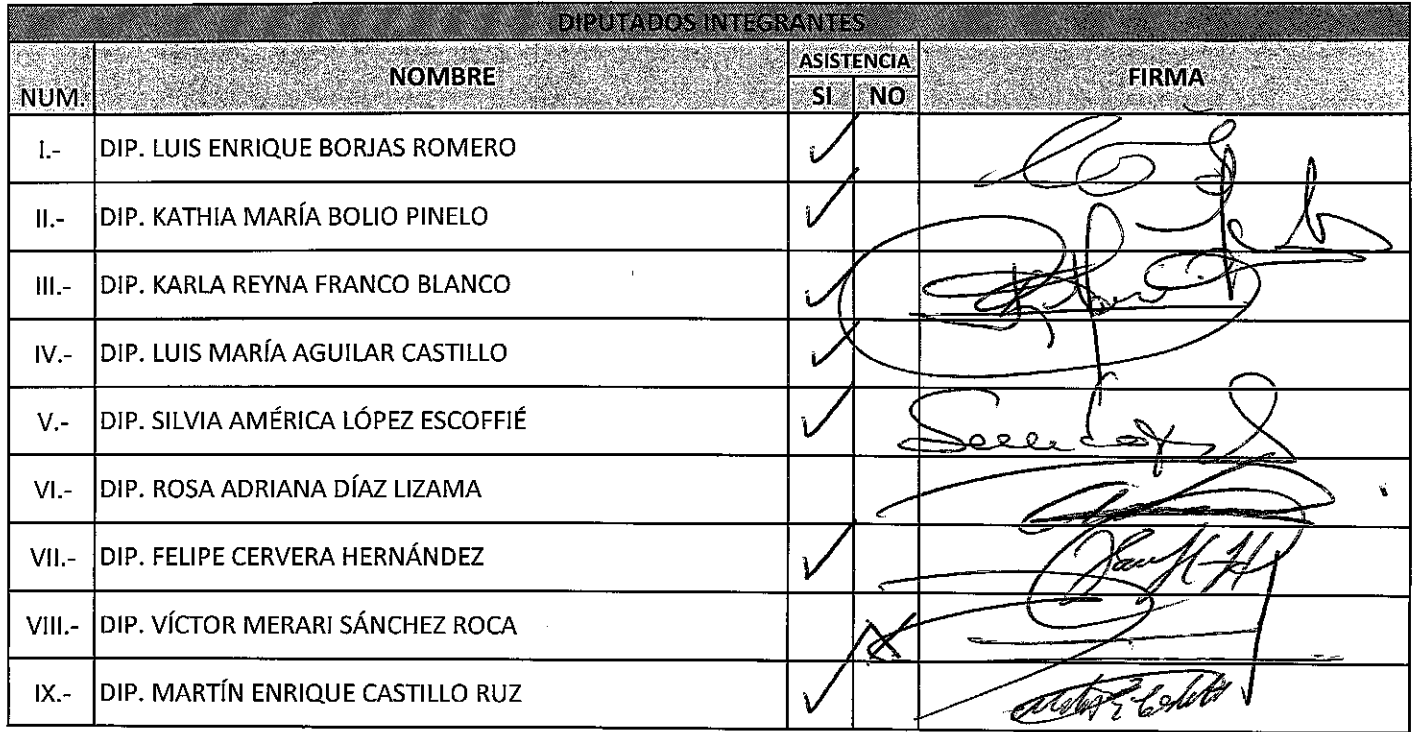 DIPUTADOS INTEGRANTES
NUM. NOMBRE ASISTENCIA FIRMA
SI NO
I.- DIP. LUIS ENRIQUE BORJAS ROMERO ✓
II.- DIP. KATHIA MARÍA BOLIO PINELO ✓
III.- DIP. KARLA REYNA FRANCO BLANCO ✓
IV.- DIP. LUIS MARÍA AGUILAR CASTILLO ✓
V.- DIP. SILVIA AMÉRICA LÓPEZ ESCOFFIÉ ✓
VI.- DIP. ROSA ADRIANA DÍAZ LIZAMA
VII.- DIP. FELIPE CERVERA HERNÁNDEZ ✓
VIII.- DIP. VÍCTOR MERARI SÁNCHEZ ROCA X
IX.- DIP. MARTÍN ENRIQUE CASTILLO RUZ ✓